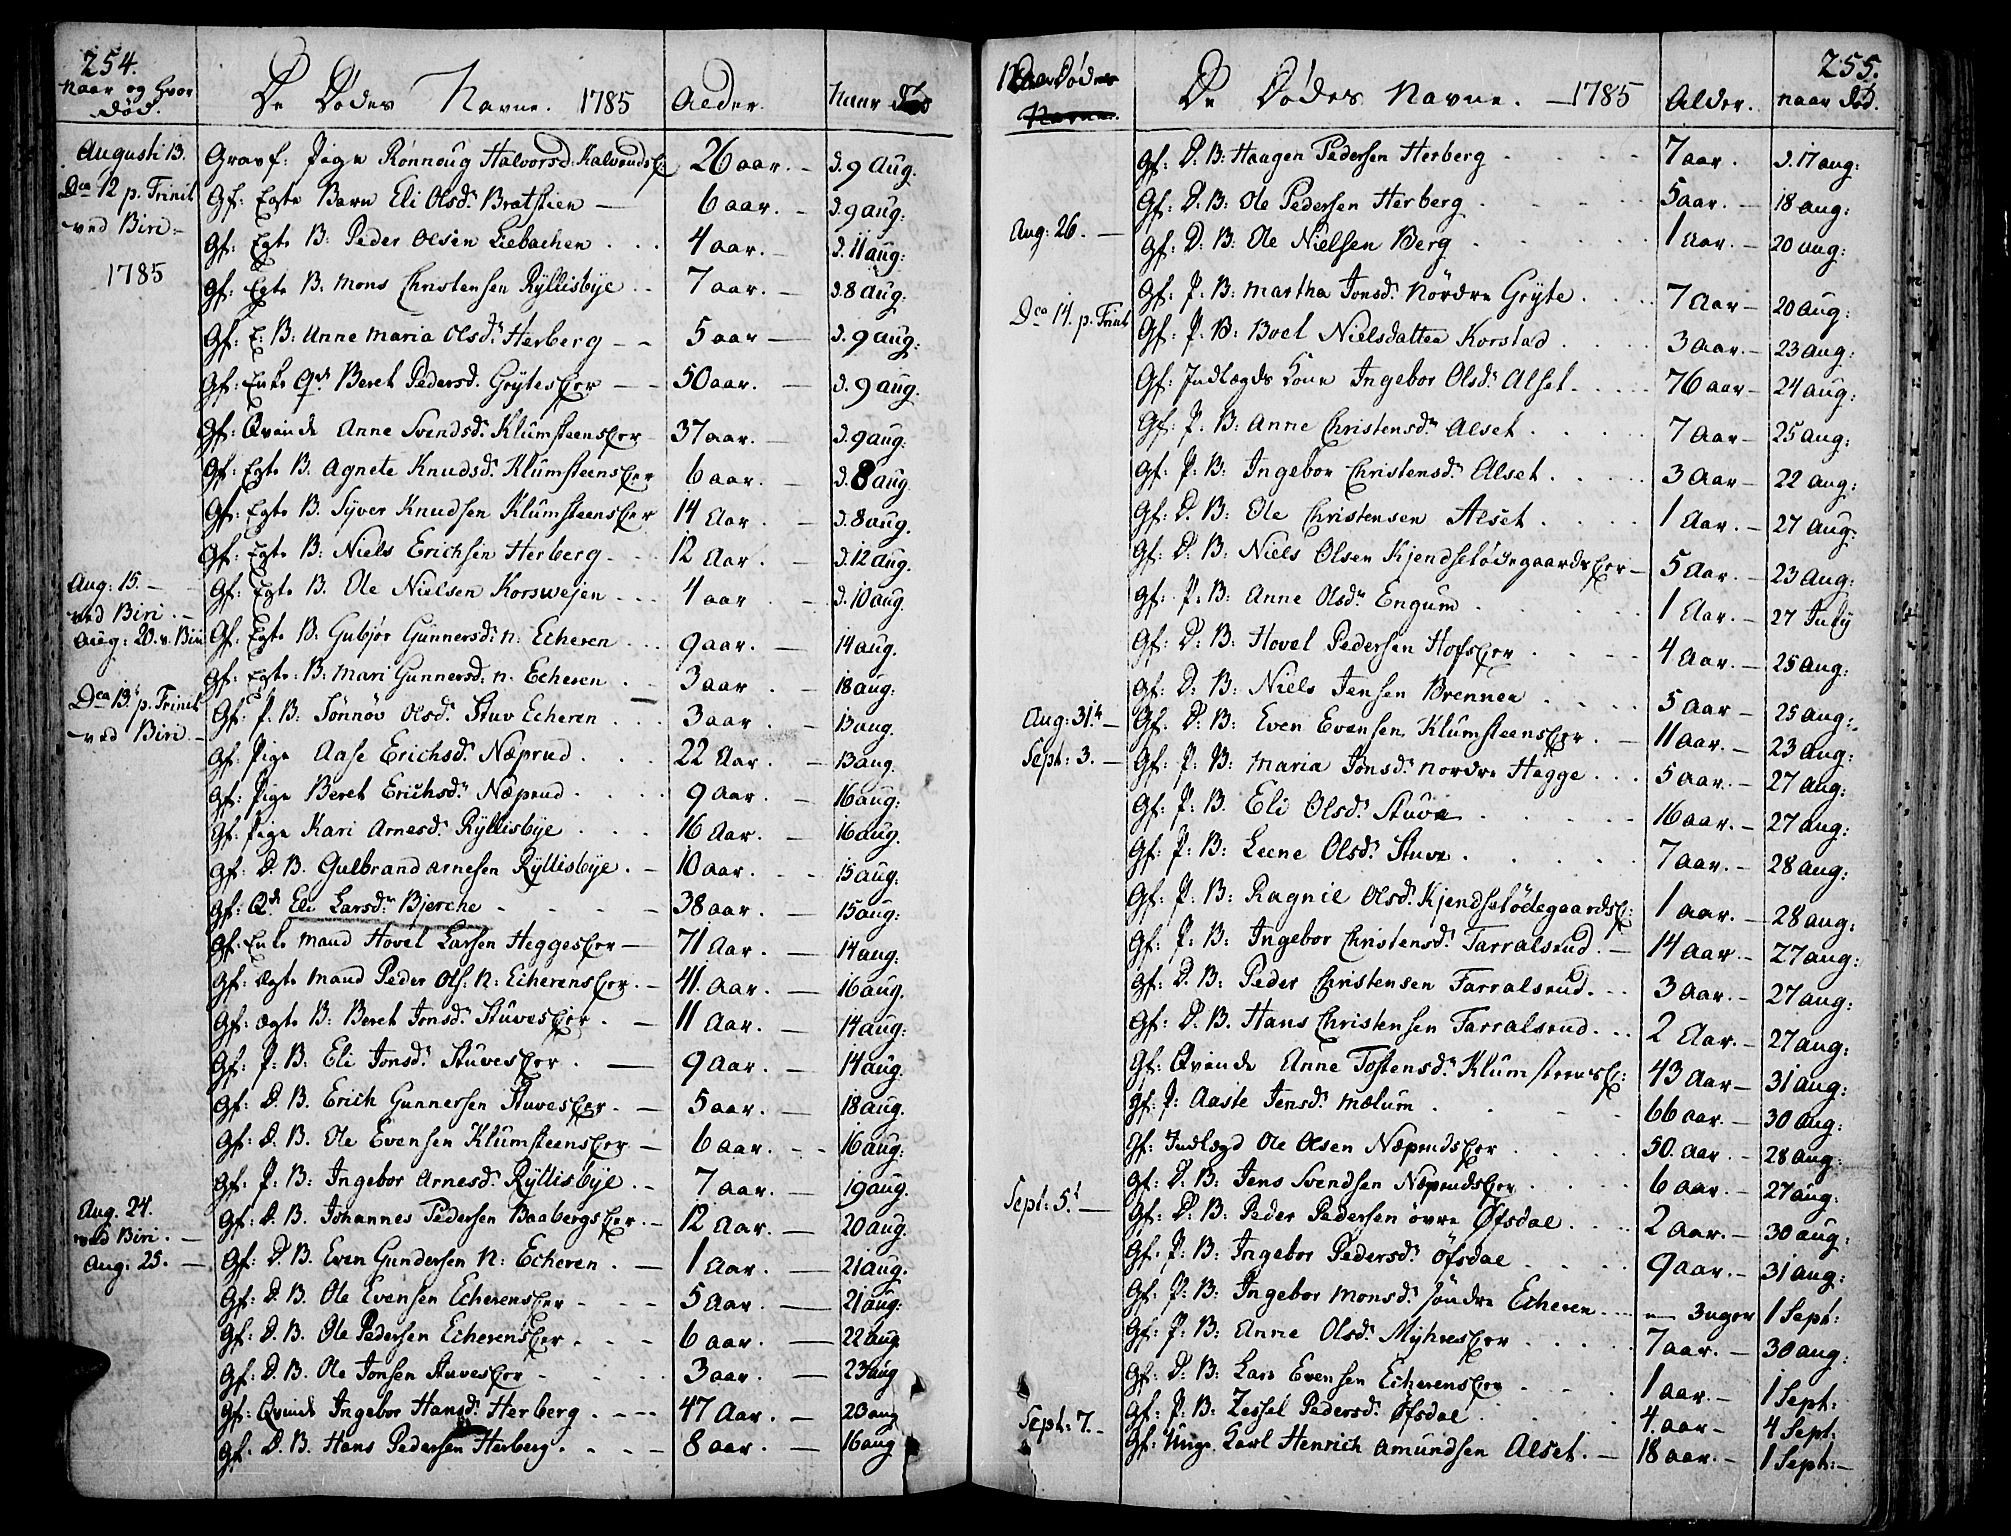 254.
Naar og hvor død.
De Dødes Navne. 1785
Aeder.
Naar død
Augusti 13. Gravf: Pige Rønnoug Halvorsd: 26 aar. - d. 9 Aug.
Dca 12 p. Trinit Gf: Egte Barn Eli Olsdr. Bratstien - 6 aar. - d. 9 aug:
ved Biri - Gf: Egte B: Peder Olsen Liebachen . . . 4 aar. - d. 11 aug:
1785 Gf: Egte B: Mons Christensen Ryllisbye - - 7 aar. - d. 8 aug:
Gf: E: B: Anne Maria Olsdr. Herberg - - 5 aar - d. 9 aug:
Gf: Enke Qde Beret Pedersd. Grytesejer - - 50 aar. - d. 9 aug.
Gf: Qvinde Anne Svendsdr. Klumsteensejer 37 aar. - d. 9 aug:
Gf: Egte B. Agnete Knudsdr. Klumsteensejer 6 aar. - d. 8 aug.
Gf: Egte B. Syver Knudsen Klumsteensejer 14 Aar. - d. 8 aug.
Gf: Egte B: Niels Erichsen Herberg - - 12 Aar. - d. 12 aug.
Aug: 15. - Gf: Egte B. Ole Nielsen Korswejen - - - 4 aar - d. 10 aug.
ved Biri. -
Aug: 20. v. Biri Gf: Egte B: Gubjør Gunnersd: n: Echeren . . . 9 aar. - 14 aug.
Gf: Egte: B: Mari Gunnersd: n. Echeren . - 3 aar . - 18 aug:
Dca 13. p. Trinit Gf: P: B: Sønnøv Olsdr. Stuv Echeren . . . 3 aar. - 13 aug.
ved Biri. - Gf: Pige Aase Erichsdr. Næprud . . . 22 Aar. - 13 aug.
Gf: Pige Beret Erichsdr. Næprud . . . . 9 Aar. - 16 aug:
Gf: Pige Kari Arnesdr. Ryllisbye . . . 16 Aar. - 16 aug.
Gf: D. B. Gulbrand Arnesen Ryllisbye . - 10 aar. - - 15 aug:
Gf: Qde Eli Larsdr. Bjerche - - - - 38 aar. - 15 aug:
Gf: Enke Mand Hovel Larsen Heggesejer - 71 Aar. - 14 aug:
Gf: ægte Mand Peder Ols: N: Echerensejer. - 41. aar. - 16 aug.
Gf: ægte B: Beret Jonsdr. Stuvesejer . - 11 Aar. - 14 aug:
Gf: P: B: Eli Jonsdr. Stuvesejer . - 9 Aar. - 14 aug:
Gf: D. B. Erich Gunnersen Stuvesejer . - 5 aar. - 18 aug.
Gf: D. B. Ole Evensen Klumsteensejer - 6 aar. - - 16 aug:
Gf: P: B: Ingebor Arnesdr. Ryllisbye . - 7 aar. - 19 aug.
Aug. 24. Gf: D. B. Johannes Pedersen Baabergsejer. - 12 Aar. - 20 aug.
ved Biri. -
Aug: 25. - Gf: D. B. Even Gundersen N: Echeren . - 1 Aar. - 21 aug.
Gf: D. B. Ole Evensen Echerensejer - - - 5 Aar. - 21 aug:
Gf: D. B. Ole Pedersen Echerensejer . - - 6 aar. - 22 aug
Gf: D. B. Ole Jonsen Stuvesejer - . . 3 aar. - 23 aug
Gf: Qvinde Ingebor Hansdr. Herberg . - - - 47 Aar. - 20 aug
Gf: D. B. Hans Pedersen Herberg . - - - 8 aar. - 16 aug
255.
De Dødes Navne. - 1785
Alder.
naar død.
Gf: D: B: Haagen Pedersen Herberg . . . . 7 aar. d. 17 aug:
Gf: D: B: Ole Pedersen Herberg . . . . 5 aar. - 18 aug:
Aug: 26. - Gf: D: B: Ole Nielsen Berg . . . . 1 aar. - 20 aug:
Gf: P: B: Martha Jonsdr. Nördre Gryte . . . 7 Aar - 20 aug:
Dca 14. p. Trinit Gf: P: B: Boel Nielsdatter Korstad . . . . 3 aar. - 23 aug:
Gf: Indlægds Kone Ingebor Olsdr. Alset . . . . 76 aar - 24 aug:
Gf: P: B: Anne Christensdr. Alset . . . . 7 aar - 25 aug:
Gf: P: B: Ingebor Christensdr. Alset . . . . 3 Aar - 22 aug:
Gf: D: B: Ole Christensen Alset . . . . 1 Aar. - 27 aug:
Gf: D: B: Niels Olsen Kjendselødegaardsejer - 5 Aar. - 23 aug:
Gf: P: B: Anne Olsdr. Engum . . . . 1 Aar. - 27 July
Gf: D: B: Hovel Pedersen Hofsejer . . . 4 Aar. - 25 aug:
Gf: D: B: Niels Jensen Brennen . . . 5 aar - 25 aug:
Aug: 31. - Gf: D: B: Even Evensen Klumsteensejer . - 11 aar. - 23 aug:
Sept: 3. - Gf: P: B: Maria Jonsdr. Nordre Hegge . . . 5 aar. - 27 aug:
Gf: P: B. Eli Olsdr. Stuve . . . . 16 aar. - 27 aug:
Gf: P: B: Leene Olsdr. Stuve . . . . 7 aar. - 28 aug:
Gf: P: B: Ragnil Olsdr. Kjendselødegaards: 1 aar. - 28 aug:
Gf: P: B: Ingebor Christensdr. Farralsrud . - 14 aar. - 27 aug:
Gf: D: B: Peder Christensen Farralsrud . . . 3 Aar. - 27 aug:
Gf: D: B. Hans Christensen Farralsrud . . . 2 Aar. - 27 aug:
Gf: Qvinde Anne Tostensdr. Klumsteens: 43 Aar - 31 aug:
Gf: P: Aaste Jensdr. Mælum . . . . 66 aar. - 30 aug:
Gf: Indlægd Ole Olsen Næprudsejer . . . . 50. Aar. - 28 aug:
Gf: D: B: Jens Svendsen Næprudsejer . . . . 6 aar. - 27 aug:
Sept: 5. - Gf: D: B: Peder Pedersen övre Øfsdal . . . 2 aar. - 30 aug:
Gf: P: B: Ingebor Pedersdr. Öfsdal . . . . 9 aar. - 31 aug:
Gf: P: B: Ingebor Monsdr. Söndre Echeren . . . - 3 uger 1 Sept:
Gf: P: B: Anne Olsdr. Myhresejer . . . . 7 aar. - 30 aug:
Gf: D: B: Lars Evensen Echerensejer . . . . 1 aar. - 1 Sept:
Gf: P: B: Zessel Pedersdr. Öfsdal . . . . 4. aar - 4 Sept:
Sept: 7. - Gf: Unge Karl Henrich Amundsen Alset. - 18 aar. - 1 Sept: -